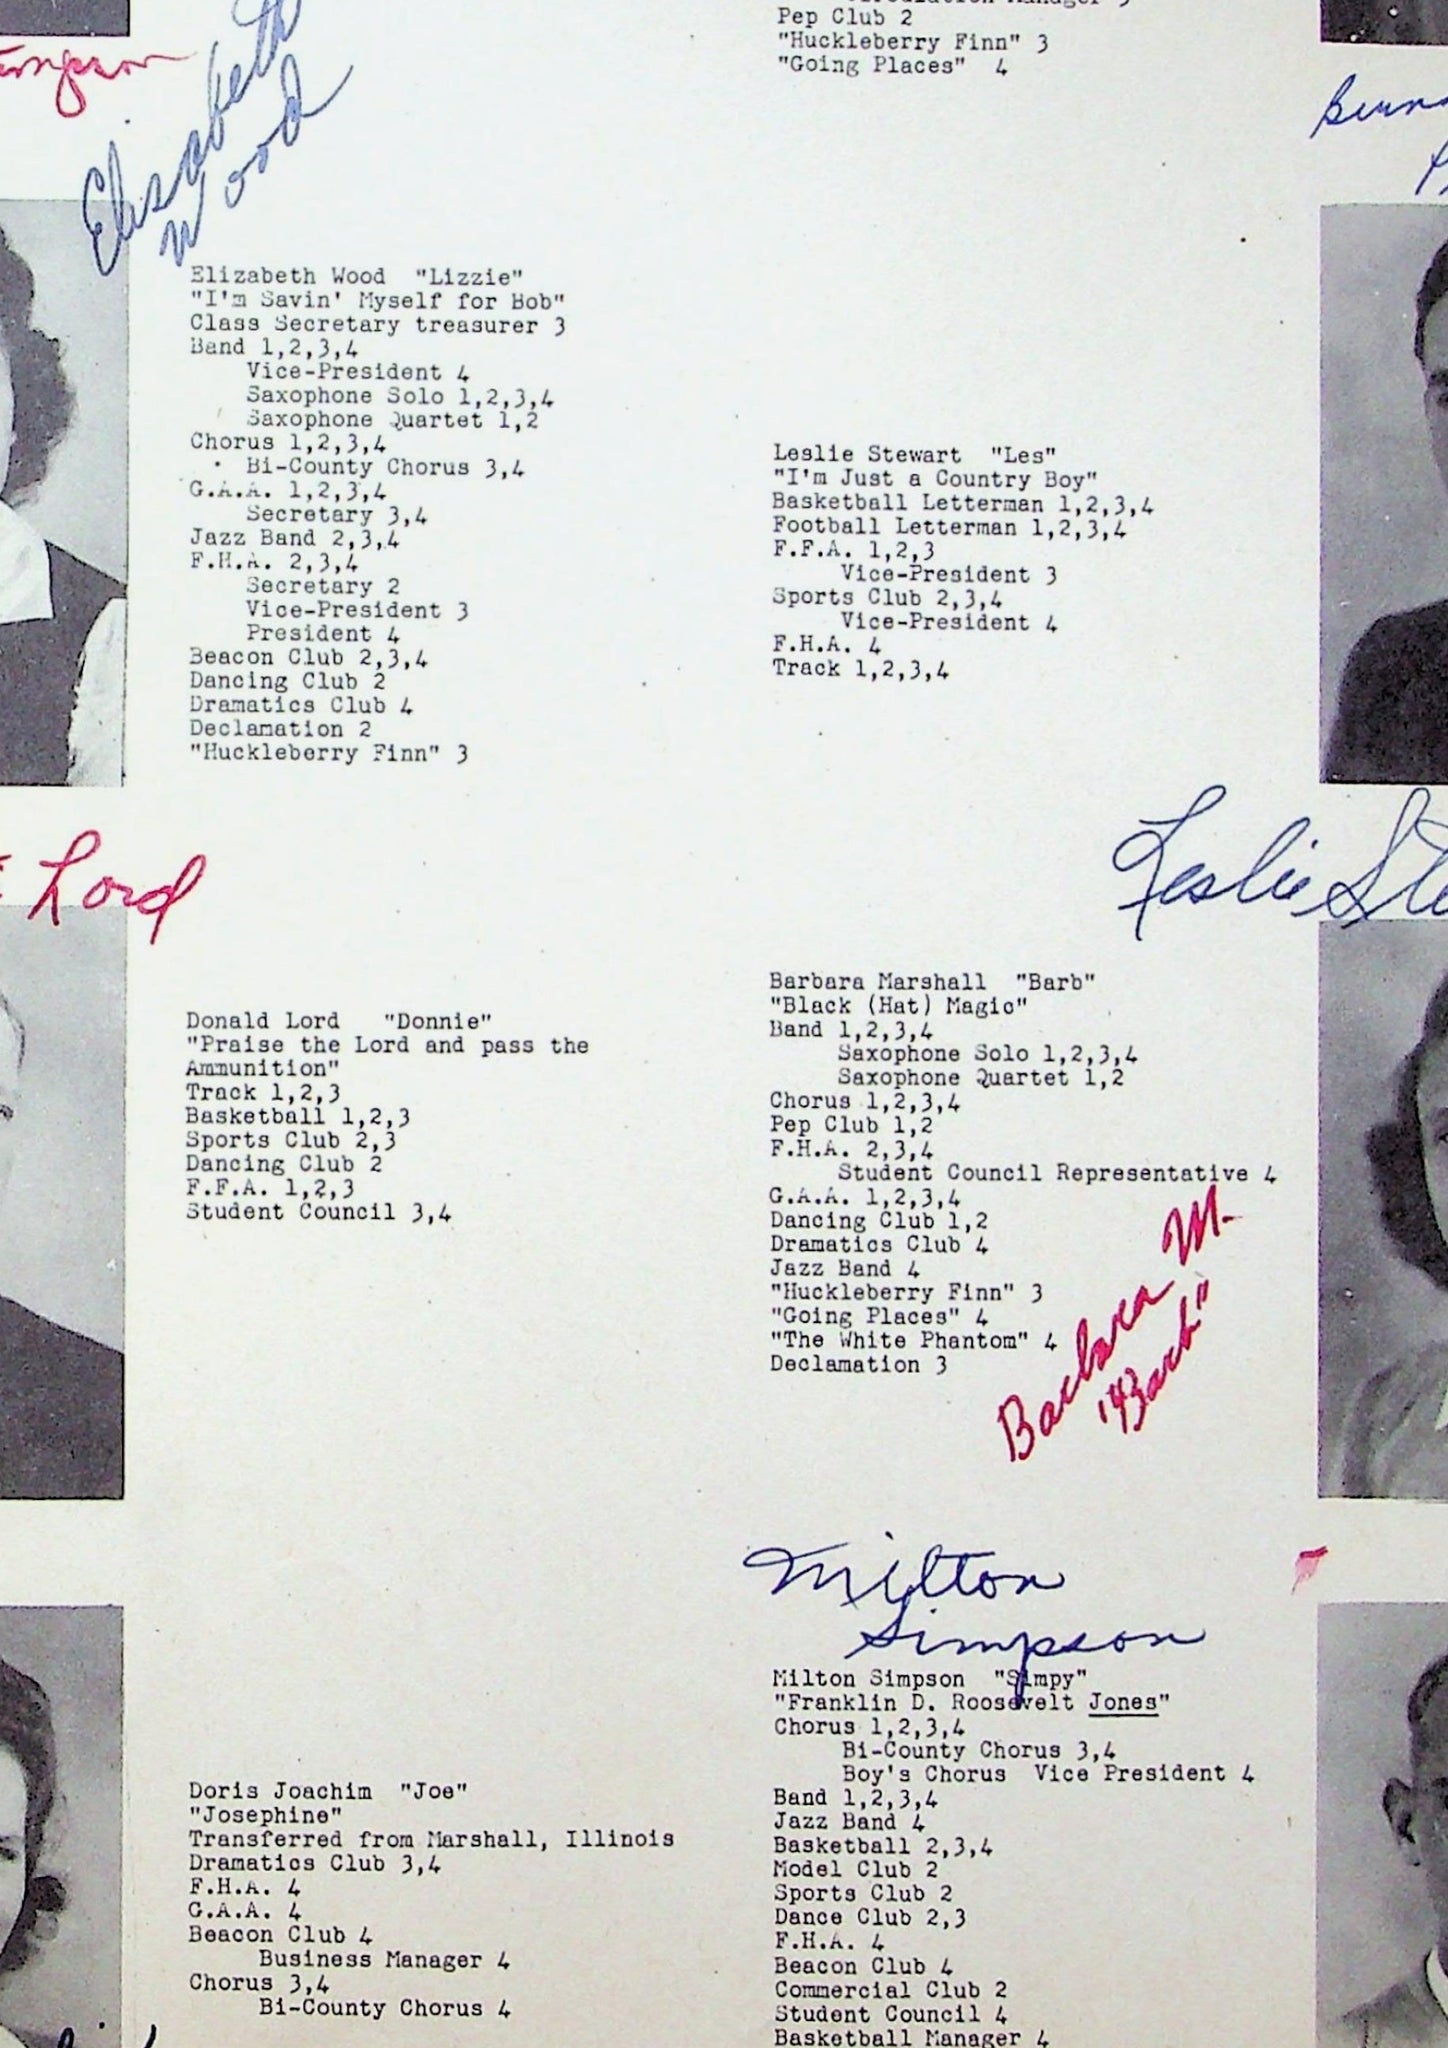 Pep Club 2
"Huckleberry Finn" 3
"Going Places" 4
Elizabeth
Wood
Elizabeth Wood "Lizzie"
"I'm Savin' Myself for Bob"
Class Secretary treasurer 3
Band 1,2,3,4
Vice-President 4
Saxophone Solo 1,2,3,4
Saxophone Quartet 1,2
Chorus 1,2,3,4
Bi-County Chorus 3,4
G.A.A. 1,2,3,4
Secretary 3,4
Jazz Band 2,3,4
F.H.A. 2,3,4
Secretary 2
Vice-President 3
President 4
Beacon Club 2,3,4
Dancing Club 2
Dramatics Club 4
Declamation 2
"Huckleberry Finn" 3
Leslie Stewart "Les"
"I'm Just a Country Boy"
Basketball Letterman 1,2,3,4
Football Letterman 1,2,3,4
F.F.A. 1,2,3
Vice-President 3
Sports Club 2,3,4
Vice-President 4
F.H.A. 4
Track 1,2,3,4
Lord
Leslie Ste
Donald Lord "Donnie"
"Praise the Lord and pass the
Ammunition"
Track 1,2,3
Basketball 1,2,3
Sports Club 2,3
Dancing Club 2
F.F.A. 1,2,3
Student Council 3,4
Barbara Marshall "Barb"
"Black (Hat) Magic"
Band 1,2,3,4
Saxophone Solo 1,2,3,4
Saxophone Quartet 1,2
Chorus 1,2,3,4
Pep Club 1,2
F.H.A. 2,3,4
Student Council Representative 4
G.A.A. 1,2,3,4
Dancing Club 1,2
Dramatics Club 4
Jazz Band 4
"Huckleberry Finn" 3
"Going Places" 4
"The White Phantom" 4
Declamation 3
Barbara M.
"Barb"
Milton
Simpson
Doris Joachim "Joe"
"Josephine"
Transferred from Marshall, Illinois
Dramatics Club 3,4
F.H.A. 4
G.A.A. 4
Beacon Club 4
Business Manager 4
Chorus 3,4
Bi-County Chorus 4
Milton Simpson "Simpy"
"Franklin D. Roosevelt Jones"
Chorus 1,2,3,4
Bi-County Chorus 3,4
Boy's Chorus Vice President 4
Band 1,2,3,4
Jazz Band 4
Basketball 2,3,4
Model Club 2
Sports Club 2
Dance Club 2,3
F.H.A. 4
Beacon Club 4
Commercial Club 2
Student Council 4
Basketball Manager 4